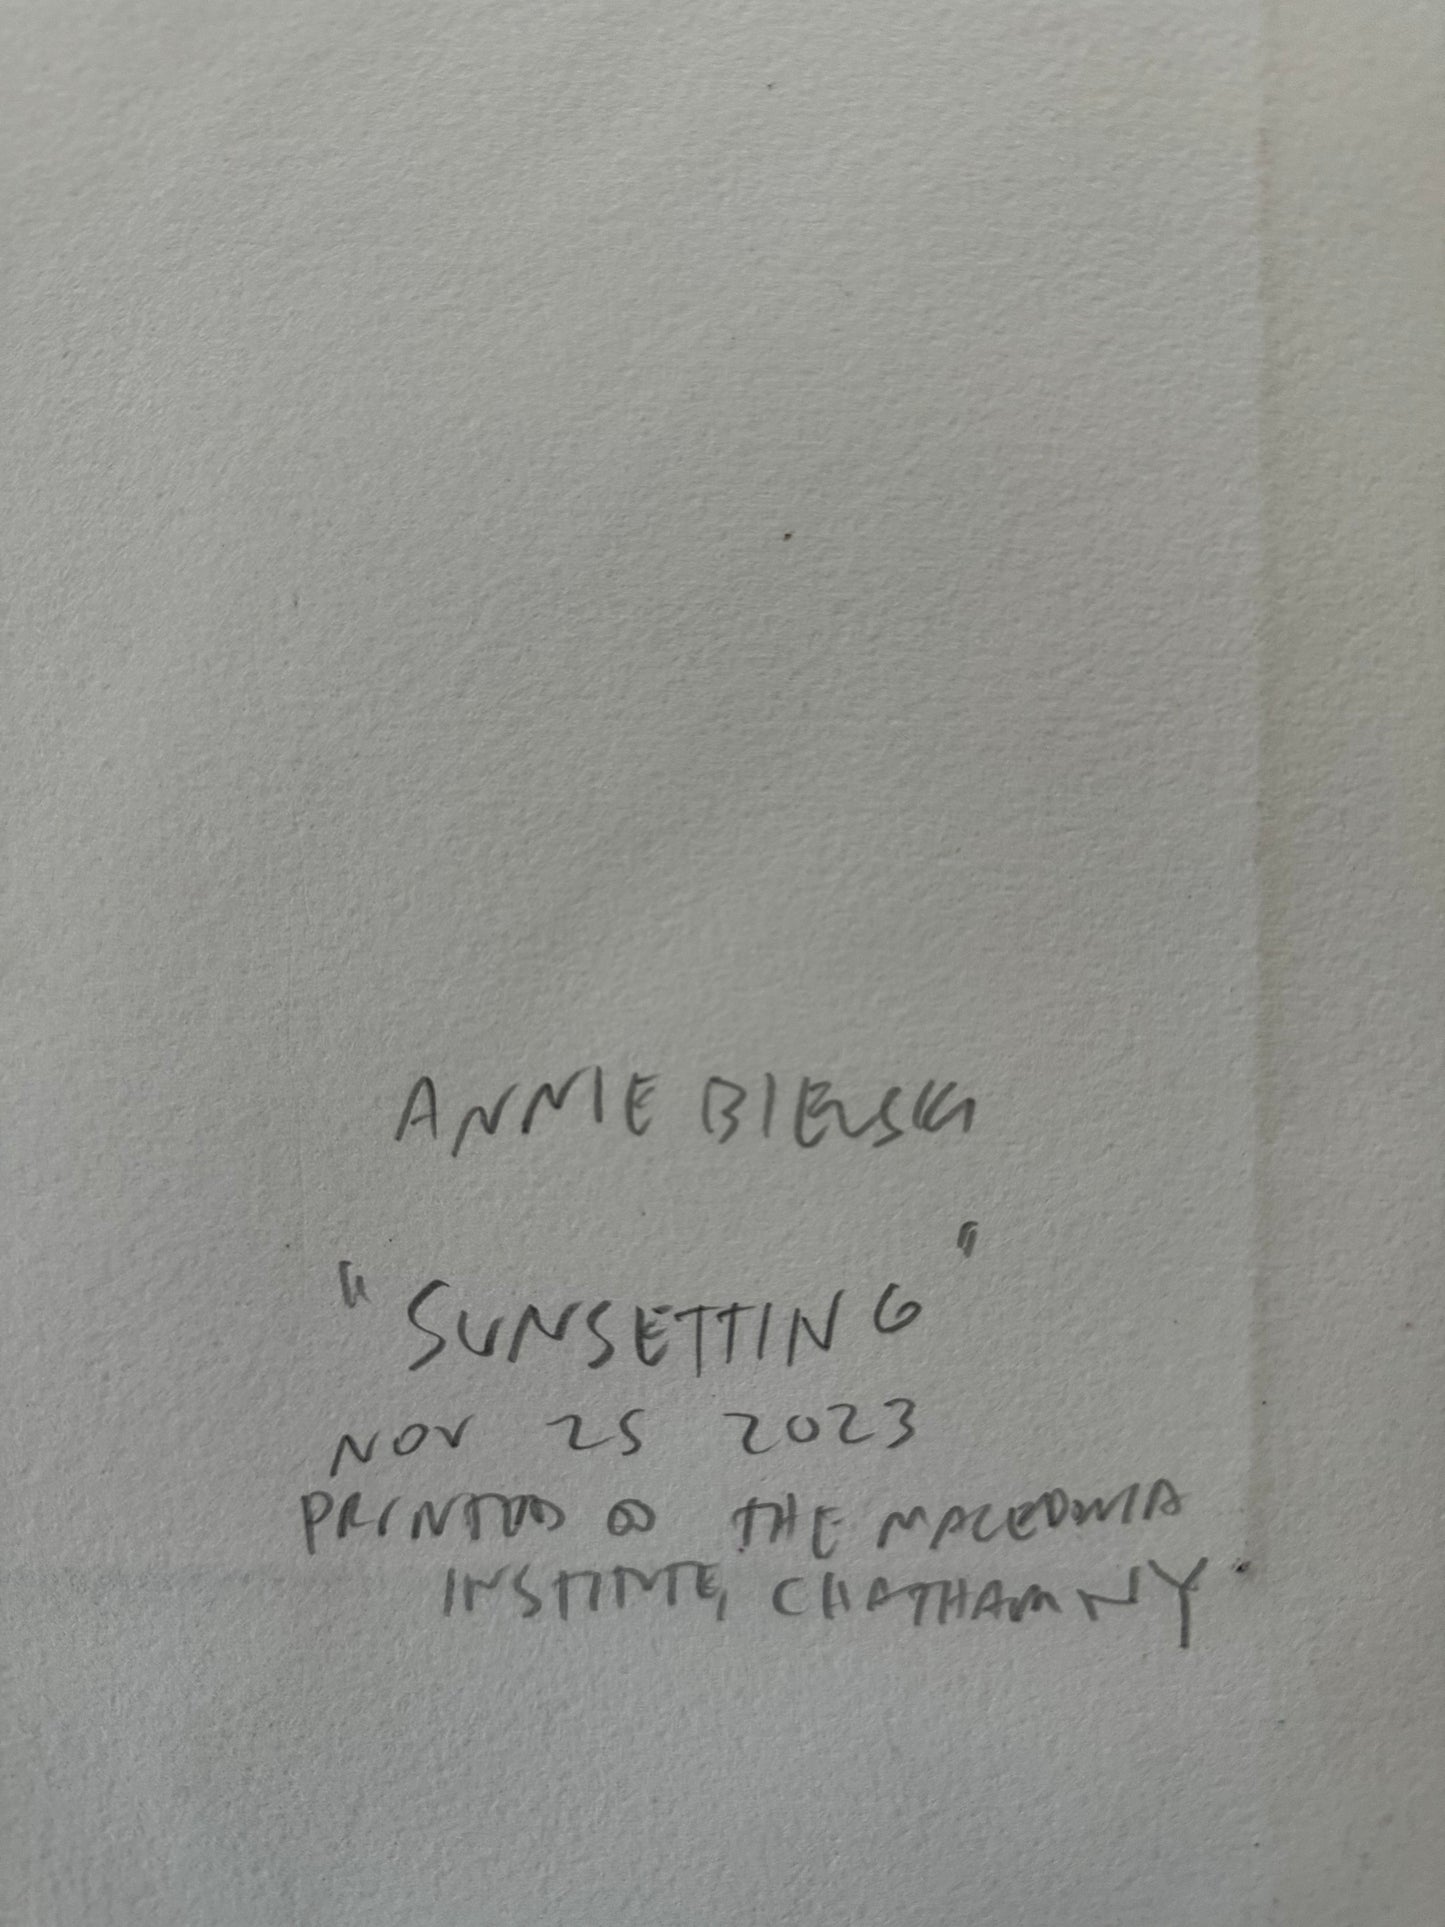 ANNIE BIELSKI
"SUNSETTING"
NOV 25 2023
PRINTED @ THE MACEDONIA
INSTITUTE, CHATHAM NY